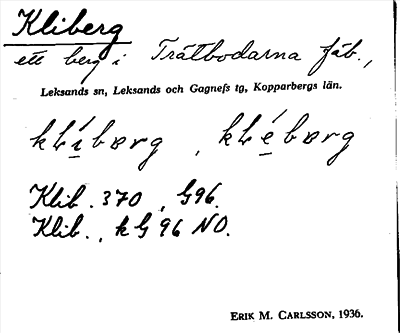 Kliberg
ett berg i Trätbodarna fäb.,
Leksands sn, Leksands och Gagnefs tg, Kopparbergs län.
Klib. 370, G96.
Klib., k G 96 NO.
ERIK M. CARLSSON, 1936.